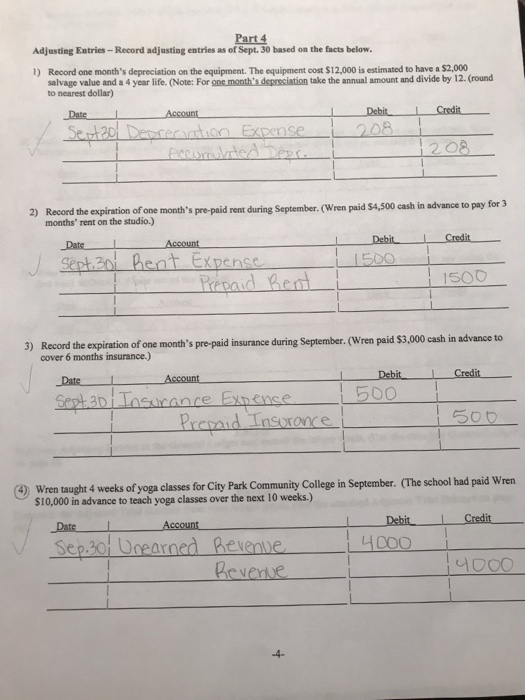 Part 4
Adjusting Entries – Record adjusting entries as of Sept. 30 based on the facts below.
1) Record one month's depreciation on the equipment. The equipment cost $12,000 is estimated to have a $2,000
salvage value and a 4 year life. (Note: For one month's depreciation take the annual amount and divide by 12. (round
to nearest dollar)
Date Account Debit Credit
Sept 30 Depreciation Expense 208
Accumulated Depr. 208
2) Record the expiration of one month's pre-paid rent during September. (Wren paid $4,500 cash in advance to pay for 3
months' rent on the studio.)
Date Account Debit Credit
Sept.30 Rent Expense 1500
Prepaid Rent 1500
3) Record the expiration of one month's pre-paid insurance during September. (Wren paid $3,000 cash in advance to
cover 6 months insurance.)
Date Account Debit Credit
Sept.30 Insurance Expence 500
Prepaid Insurance 500
4) Wren taught 4 weeks of yoga classes for City Park Community College in September. (The school had paid Wren
$10,000 in advance to teach yoga classes over the next 10 weeks.)
Date Account Debit Credit
Sep.30 Unearned Revenue 4000
Revenue 4000
-4-